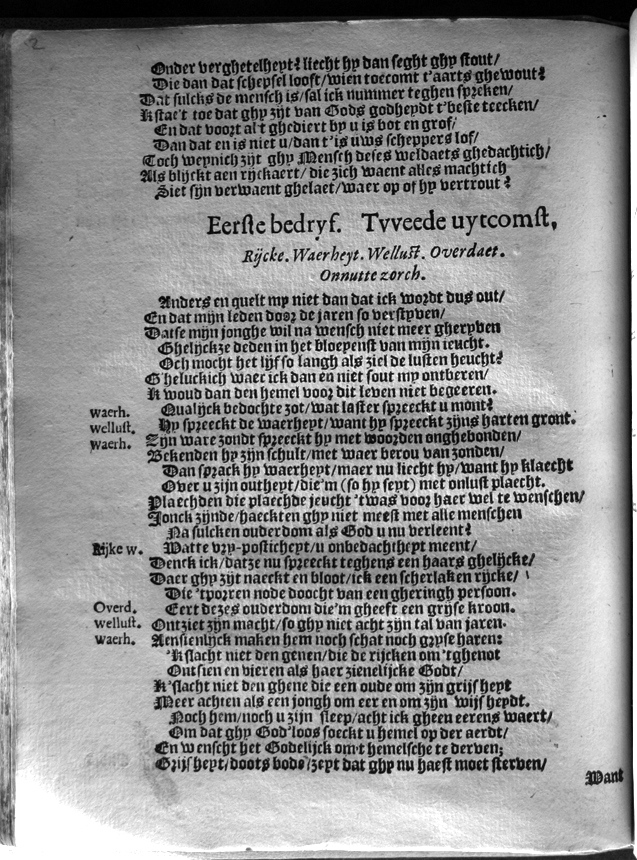 2
Onder verghetelheyt? liecht hy dan seght ghy stout/
Die dan dat schepsel looft/wien toecomt t'aarts ghewout?
Dat sulcks de mensch is/sal ick nummer teghen spreken/
Kstae't toe dat ghy zijt van Gods godheydt t'beste teecken/
En dat voort al t ghediert by u is bot en grof/
Dan dat en is niet u/dan t'is uws scheppers lof/
Toch weynich zijt ghy Mensch deses weldaets ghedachtich/
Als blijckt aen rijckaert/ die zich waent alles machtich
Siet sijn verwaent ghelaet/waer op of hy vertrout?
Eerste bedryf. Tvveede uytcomst,
Rijcke. Waerheyt. Wellust. Overdaet.
Onnutte zorch.
Anders en quelt my niet dan dat ick wordt dus out/
En dat mijn leden door de jaren so verstyven/
Datse mijn jonghe wil na wensch niet meer gheryven
Ghelijckze deden in het bloeyenst van mijn ieucht.
Och mocht het lijf so langh als ziel de lusten heucht?
G'heluckich waer ick dan en niet sout my ontberen/
Ik woud dan den hemel voor dit leven niet begeeren.
waerh. Qualijck bedochte zot/wat laster spreeckt u mont?
wellust. Hy spreeckt de waerheyt/want hy spreeckt zijns harten gront.
waerh. Zijn ware zondt spreeckt hy met woorden onghebonden/
Bekenden hy zijn schult/met waer berou van zonden/
Dan sprack hy waerheyt/maer nu liecht hy/want hy klaecht
Over u zijn outheyt/die'm (so hy seyt) met onlust plaecht.
Plaechden die plaechde jeucht 'twas voor haer wel te wenschen/
Jonck zijnde/haeckten ghy niet meest met alle menschen
Na sulcken ouderdom als God u nu verleent?
Rijke w. Watte vry-posticheyt/u onbedachtheyt meent/
Denck ick/datze nu spreeckt teghens een haars ghelijcke/
Daer ghy zijt naeckt en bloot/ick een scherlaken rijcke/
Die 'tporren node doocht van een gheringh persoon.
Overd. Eert dezes ouderdom die'm gheeft een grijse kroon.
wellust. Ontziet zijn macht/so ghy niet acht zijn tal van jaren.
waerh. Aensienlijck maken hem noch schat noch gryse haren:
'Kslacht niet den genen/die de rijcken om'tghenot
Ontsien en vieren als haer zienelijcke Godt/
K'slacht niet den ghene die een oude om zijn grijsheyt
Meer achten als een jongh om eer en om zijn wijsheydt.
Noch hem/noch u zijn sleep/acht ick gheen eerens waert/
Om dat ghy God'loos soeckt u hemel op der aerdt/
En wenscht het Godelijck om't hemelsche te derven;
Grijsheyt/doots bode/zeyt dat ghy nu haest moet sterven/
Want